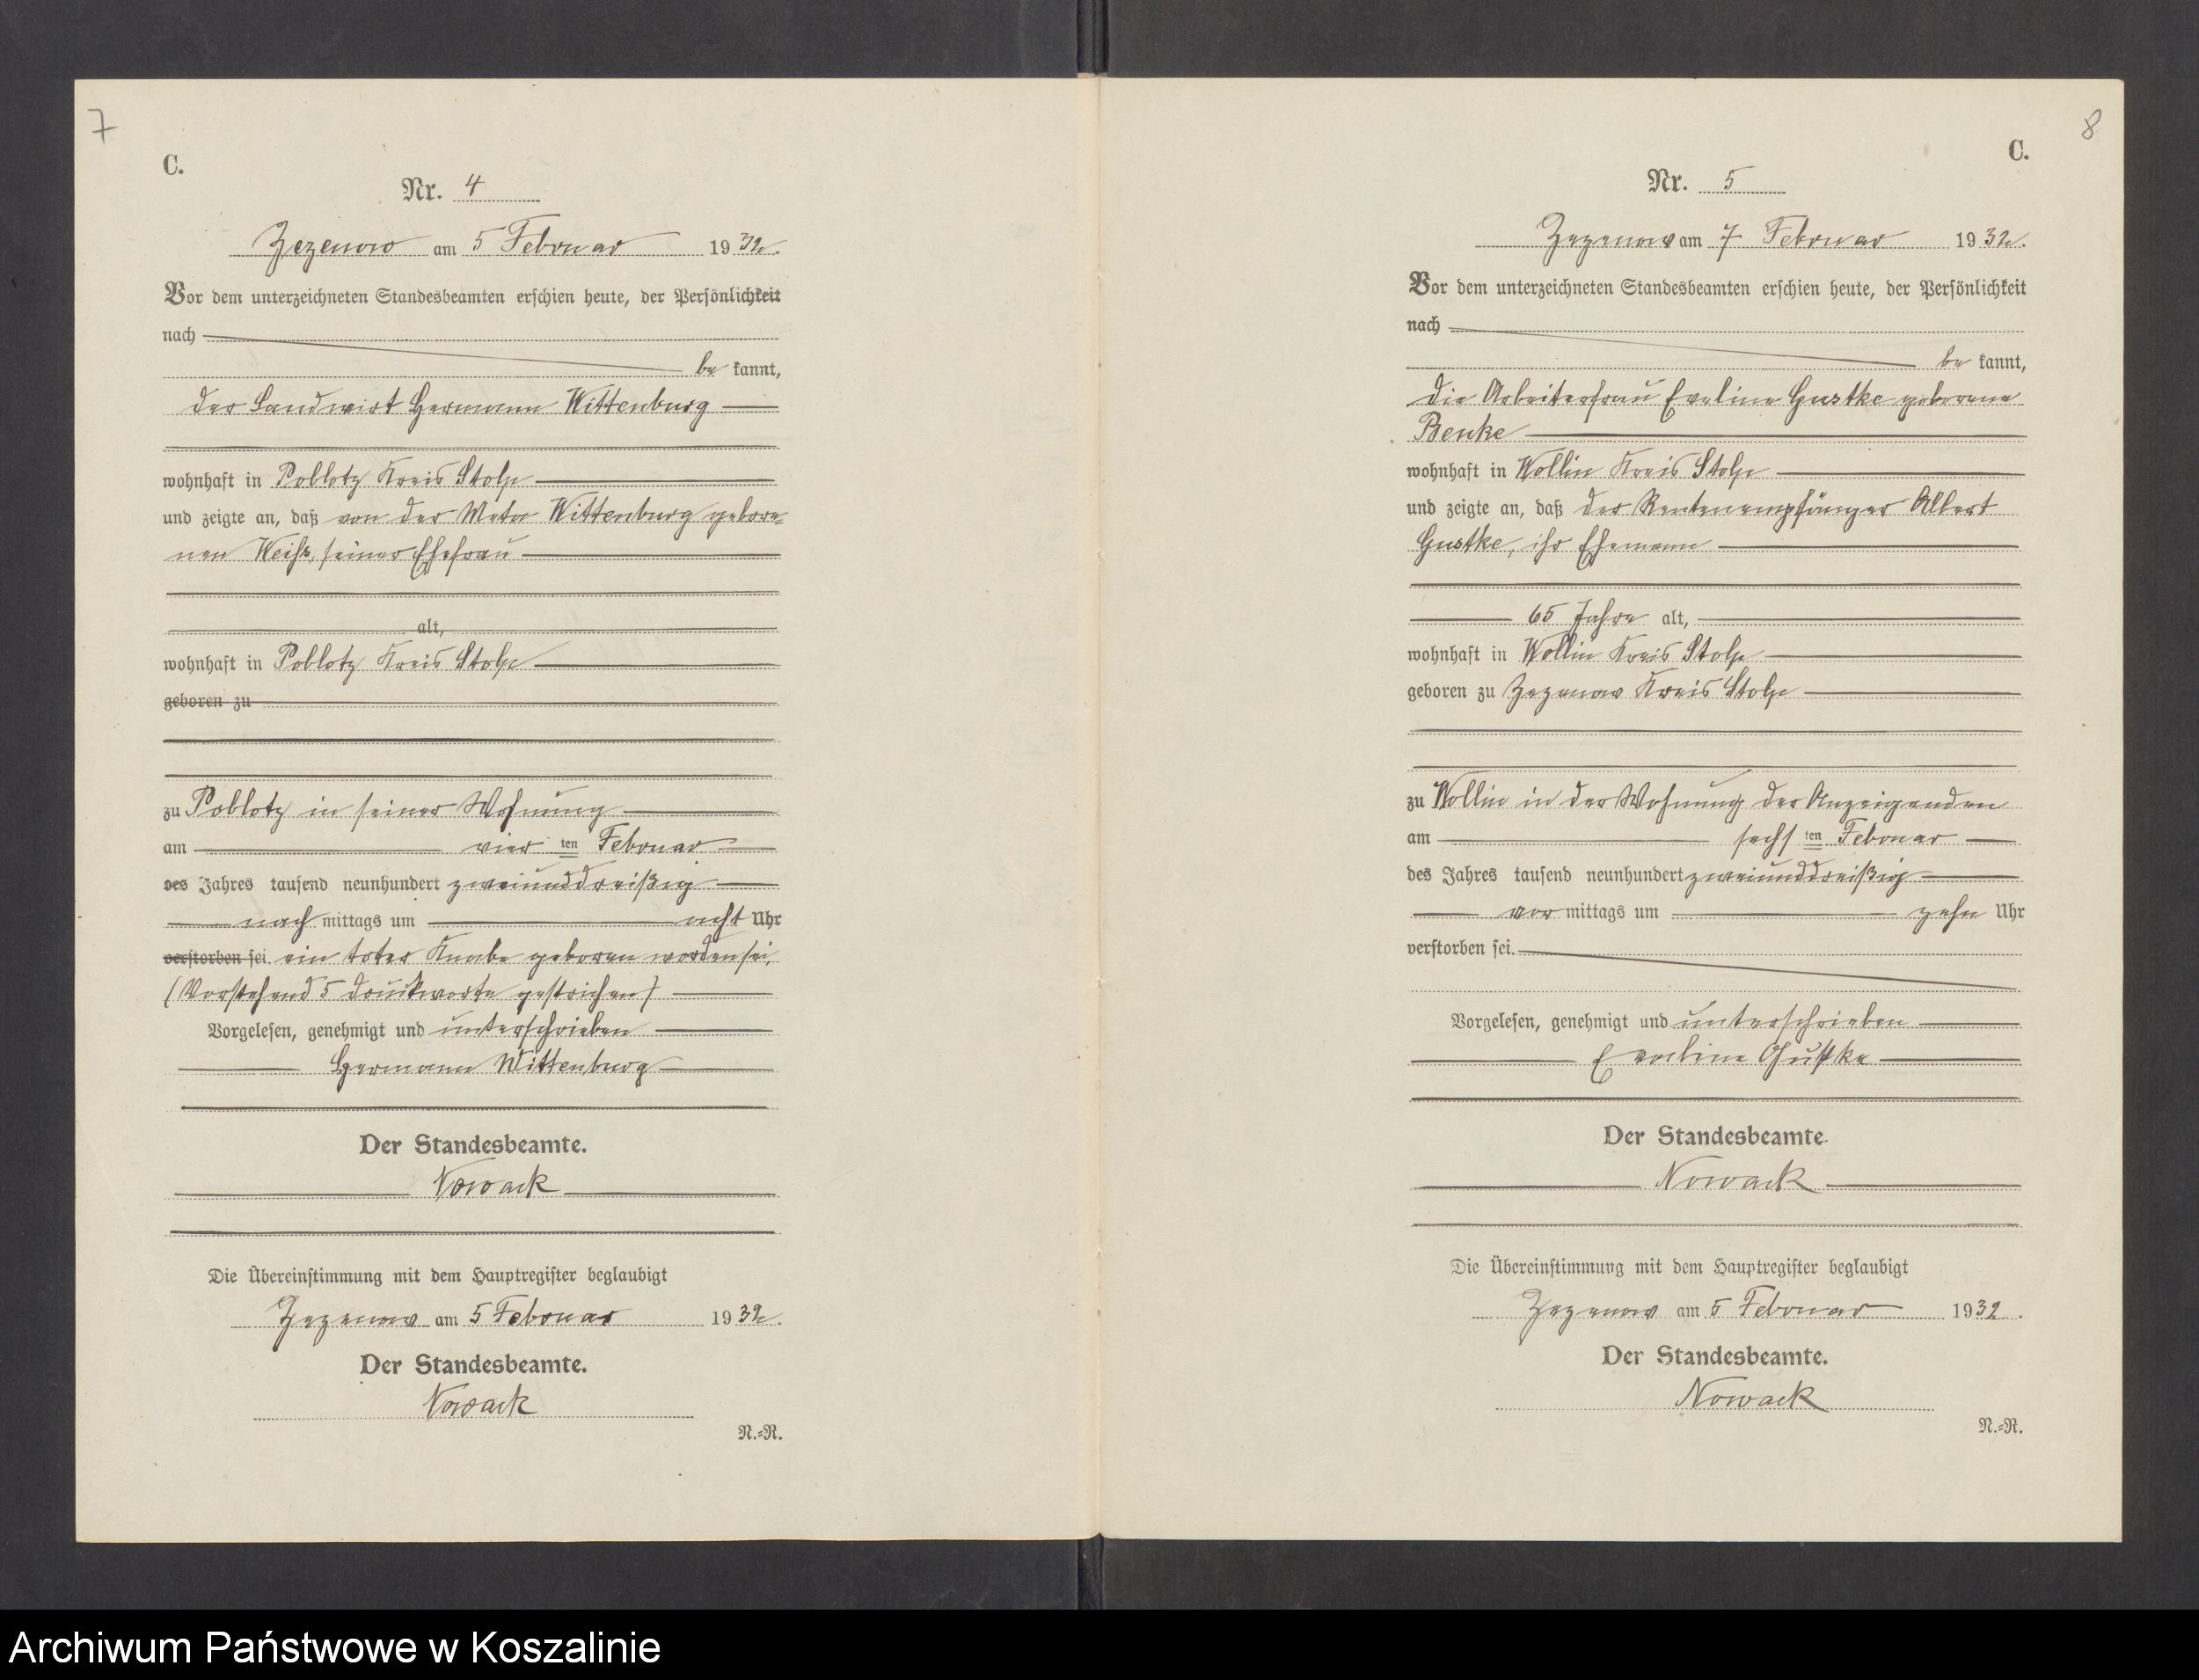 7
C.
Nr. 4
Zezenow am 5 Februar 1932.
Vor dem unterzeichneten Standesbeamten erschien heute, der Persönlichkeit
nach
be kannt,
der Landwirt Hermann Wittenburg
wohnhaft in Poblotz Kreis Stolp
und zeigte an, daß von der Meta Wittenburg gebore-
nen Weiß, seiner Ehefrau
alt,
wohnhaft in Poblotz Kreis Stolp
geboren zu
zu Poblotz in seiner Wohnung
am vier ten Februar
des Jahres tausend neunhundert zweiunddreißig
nach mittags um acht Uhr
verstorben sei. ein toter Knabe geboren worden sei.
(Vorstehend 5 Druckworte gestrichen)
Vorgelesen, genehmigt und unterschrieben
Hermann Wittenburg
Der Standesbeamte.
Nowack
Die Übereinstimmung mit dem Hauptregister beglaubigt
Zezenow am 5 Februar 1932.
Der Standesbeamte.
Nowack
N.=R.
8
C.
Nr. 5
Zezenow am 7 Februar 1932.
Vor dem unterzeichneten Standesbeamten erschien heute, der Persönlichkeit
nach
be kannt,
die Arbeiterfrau Eveline Gustke geborene
Benke
wohnhaft in Wollin Kreis Stolp
und zeigte an, daß der Rentenempfänger Albert
Gustke, ihr Ehemann
65 Jahre alt,
wohnhaft in Wollin Kreis Stolp
geboren zu Zezenow Kreis Stolp
zu Wollin in der Wohnung der Anzeigenden
am sechs ten Februar
des Jahres tausend neunhundert zweiunddreißig
vor mittags um zehn Uhr
verstorben sei.
Vorgelesen, genehmigt und unterschrieben
Eveline Gustke
Der Standesbeamte.
Nowack
Die Übereinstimmung mit dem Hauptregister beglaubigt
Zezenow am 5 Februar 1932.
Der Standesbeamte.
Nowack
N.=R.
Archiwum Państwowe w Koszalinie